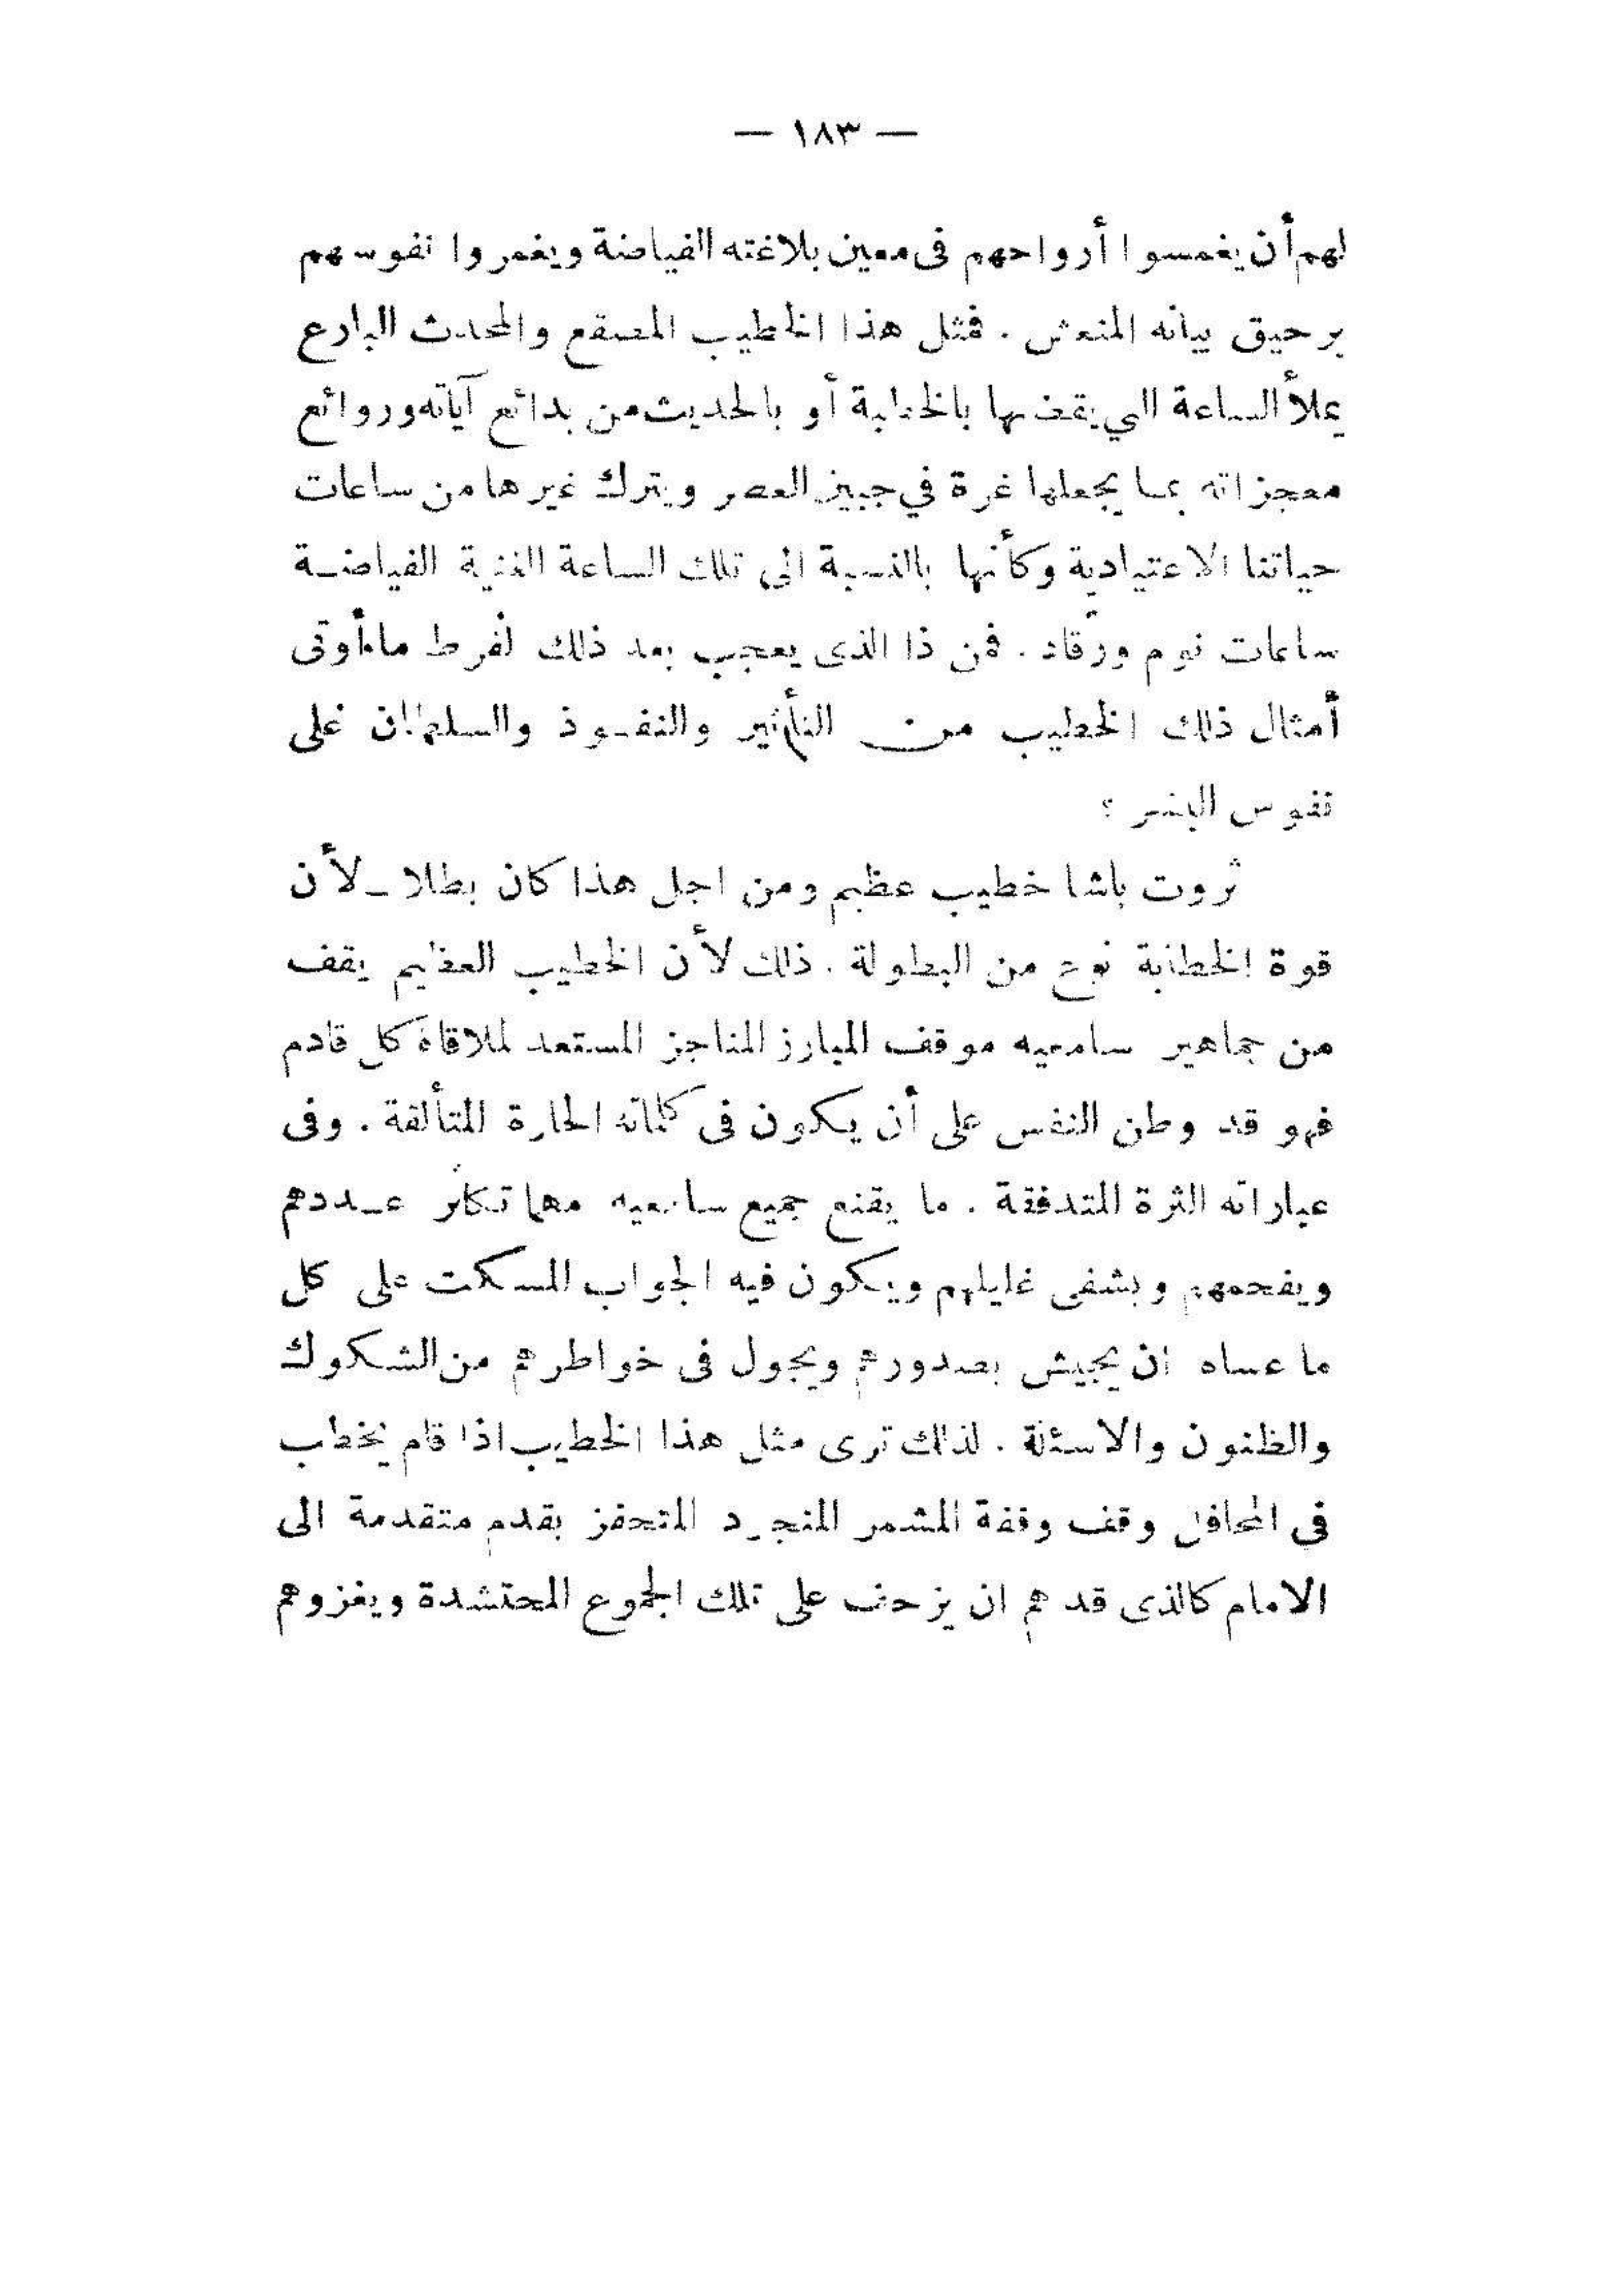 — ١٨٣ —
لهم أن يغمسوا أرواحهم فى معين بلاغته الفياضة ويغمروا نفوسهم
برحيق بيانه المنعش . فمثل هذا الخطيب المصقع والمحدث البارع
يملأ الساعة التي يقضيها بالخطابة أو بالحديث من بدائع آياته وروائع
معجزاته بما يجعلها غرة في جبين العصر ويترك غيرها من ساعات
حياتنا الاعتيادية وكأنها بالنسبة الى تلك الساعة الغنية الفياضة
ساعات نوم ورقاد . فمن ذا الذى يعجب بعد ذلك لفرط ما أوتى
أمثال ذلك الخطيب من التأثير والنفوذ والسلطان على
نفوس البشر ؟
ثروت باشا خطيب عظيم ومن اجل هذا كان بطلا ـ لأن
قوة الخطابة نوع من البطولة . ذلك لأن الخطيب العظيم يقف
من جماهير سامعيه موقف المبارز المناجز المستعد لملاقاة كل قادم
فهو قد وطن النفس على أن يكون فى كلماته الحارة المتألقة . وفى
عباراته الثرة المتدفقة . ما يقنع جميع سامعيه مهما تكاثر عددهم
ويفحمهم ويشفى غليلهم ويكون فيه الجواب المسكت على كل
ما عساه ان يجيش بصدورهم ويجول فى خواطرهم من الشكوك
والظنون والاسئلة . لذلك ترى مثل هذا الخطيب اذا قام يخطب
فى المحافل وقف وقفة المشمر المنجرد المتحفز بقدم متقدمة الى
الامام كالذى قد هم ان يزحف على تلك الجموع المحتشدة ويغزوهم